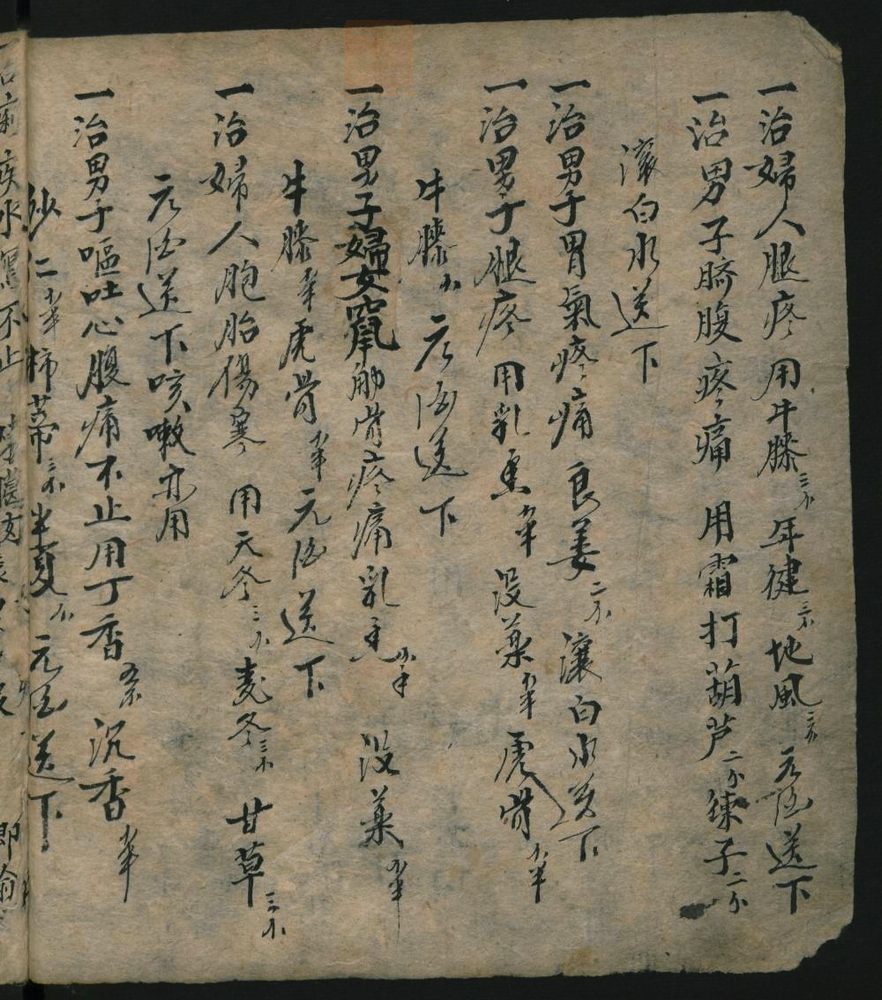 一治婦人腿疼用牛膝三分年健三分地風三分元酒送下
一治男子臍腹疼痛用霜打葫芦二分練子二分
滾白水送下
一治男子胃氣疼痛良姜二分滾白水送下
一治男子腿疼用乳香分半没藥分半虎骨分半
牛膝分元酒送下
一治男子婦女竄觔骨疼痛乳香分半没藥分半
牛膝分半虎骨分半元酒送下
一治婦人胞胎傷寒用天冬三分麦冬三分甘草三分
元酒送下咳嗽亦用
一治男子嘔吐心腹痛不止用丁香沉香分半
砂仁分半柿蒂三分半夏分元酒送下